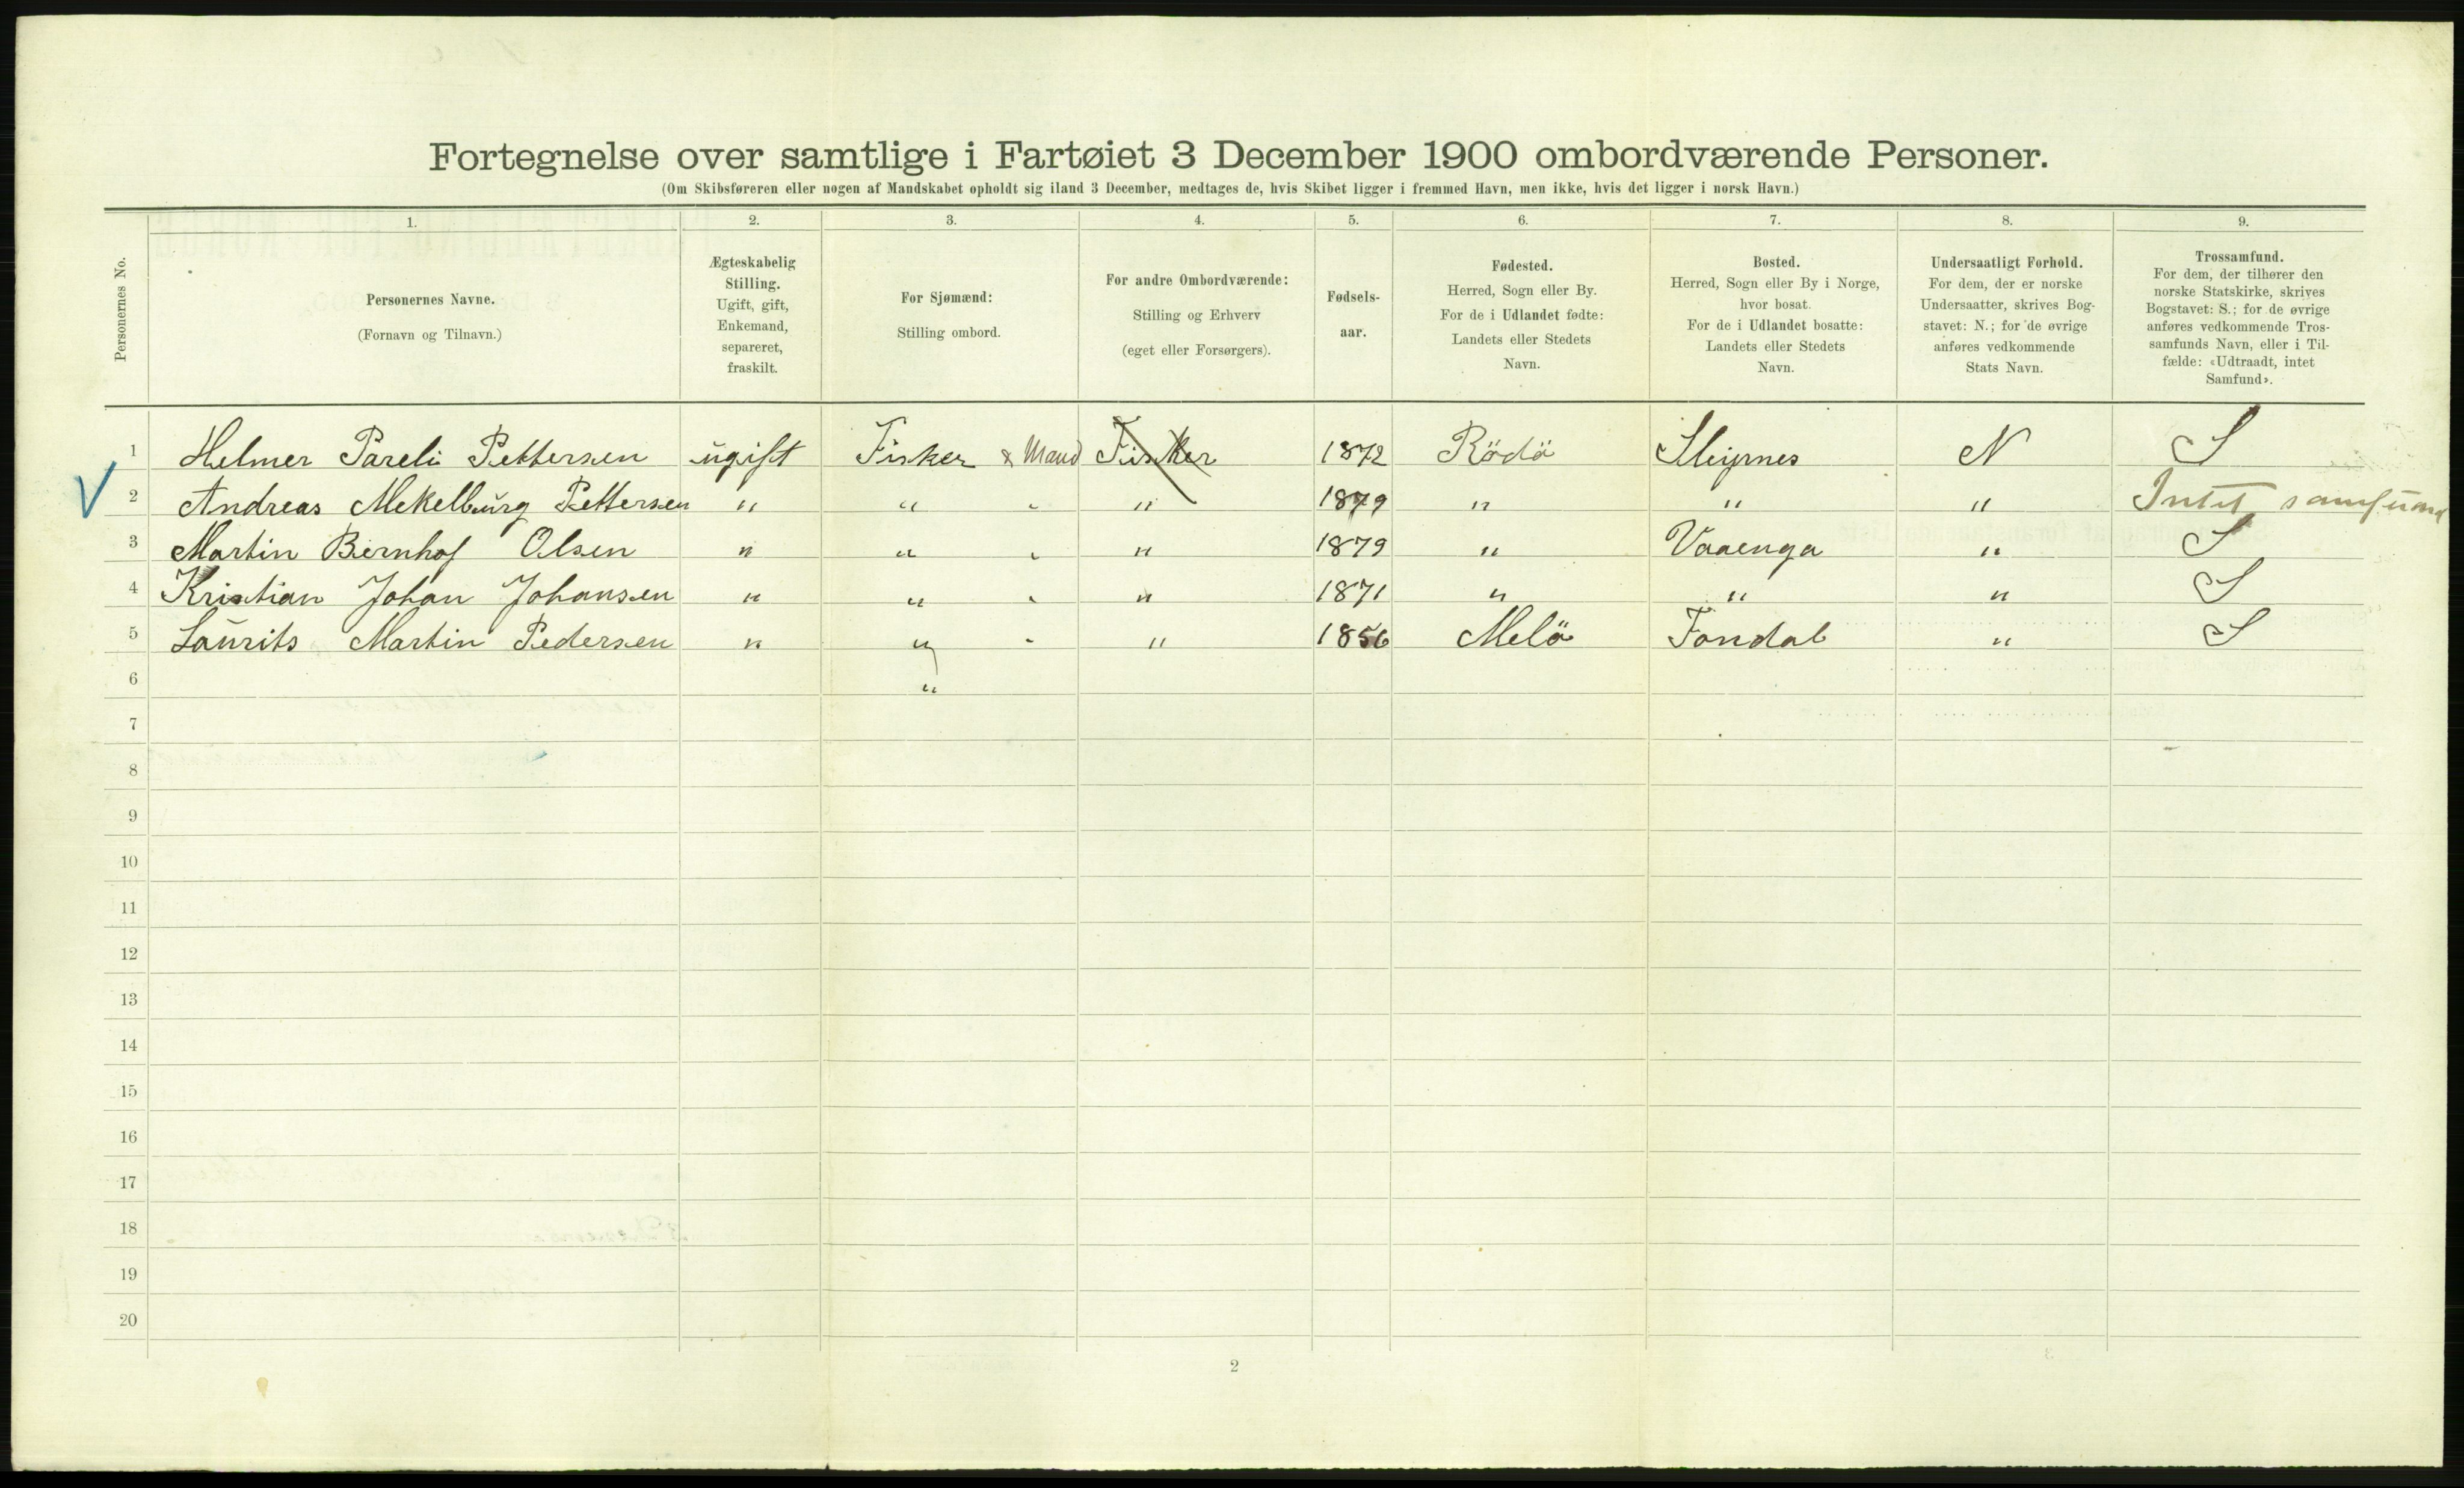 Fortegnelse over samtlige i Fartøiet 3 December 1900 ombordværende Personer.
(Om Skibsføreren eller nogen af Mandskabet opholdt sig iland 3 December, medtages de, hvis Skibet ligger i fremmed Havn, men ikke, hvis det ligger i norsk Havn.)
Personernes No.
1.
Personernes Navne.
(Fornavn og Tilnavn.)
2.
Ægteskabelig
Stilling.
Ugift, gift,
Enkemand,
separeret,
fraskilt.
3.
For Sjømænd:
Stilling ombord.
4.
For andre Ombordværende:
Stilling og Erhverv
(eget eller Forsørgers).
5.
Fødsels-
aar.
6.
Fødested.
Herred, Sogn eller By.
For de i Udlandet fødte:
Landets eller Stedets
Navn.
7.
Bosted.
Herred, Sogn eller By i Norge,
hvor bosat.
For de i Udlandet bosatte:
Landets eller Stedets
Navn.
8.
Undersaatligt Forhold.
For dem, der er norske
Undersaatter, skrives Bog-
stavet: N.; for de øvrige
anføres vedkommende
Stats Navn.
9.
Trossamfund.
For dem, der tilhører den
norske Statskirke, skrives
Bogstavet: S.; for de øvrige
anføres vedkommende Tros-
samfunds Navn, eller i Til-
fælde: «Udtraadt, intet
Samfund».
1 Helmer Pareli Pettersen ugift Fisker & Mand Fisker 1872 Rödö N S
2 Andreas Mekelburg Pettersen " " " " 1879 " " " Intet samfund
3 Martin Bernhof Olsen " " " " 1879 " Vaaenga " S
4 Kristian Johan Johansen " " " " 1871 " " " S
5 Laurits Martin Pedersen " " " " 1856 Melö Fondal " S
6 "
7
8
9
10
11
12
13
14
15
16
17
18
19
20
2